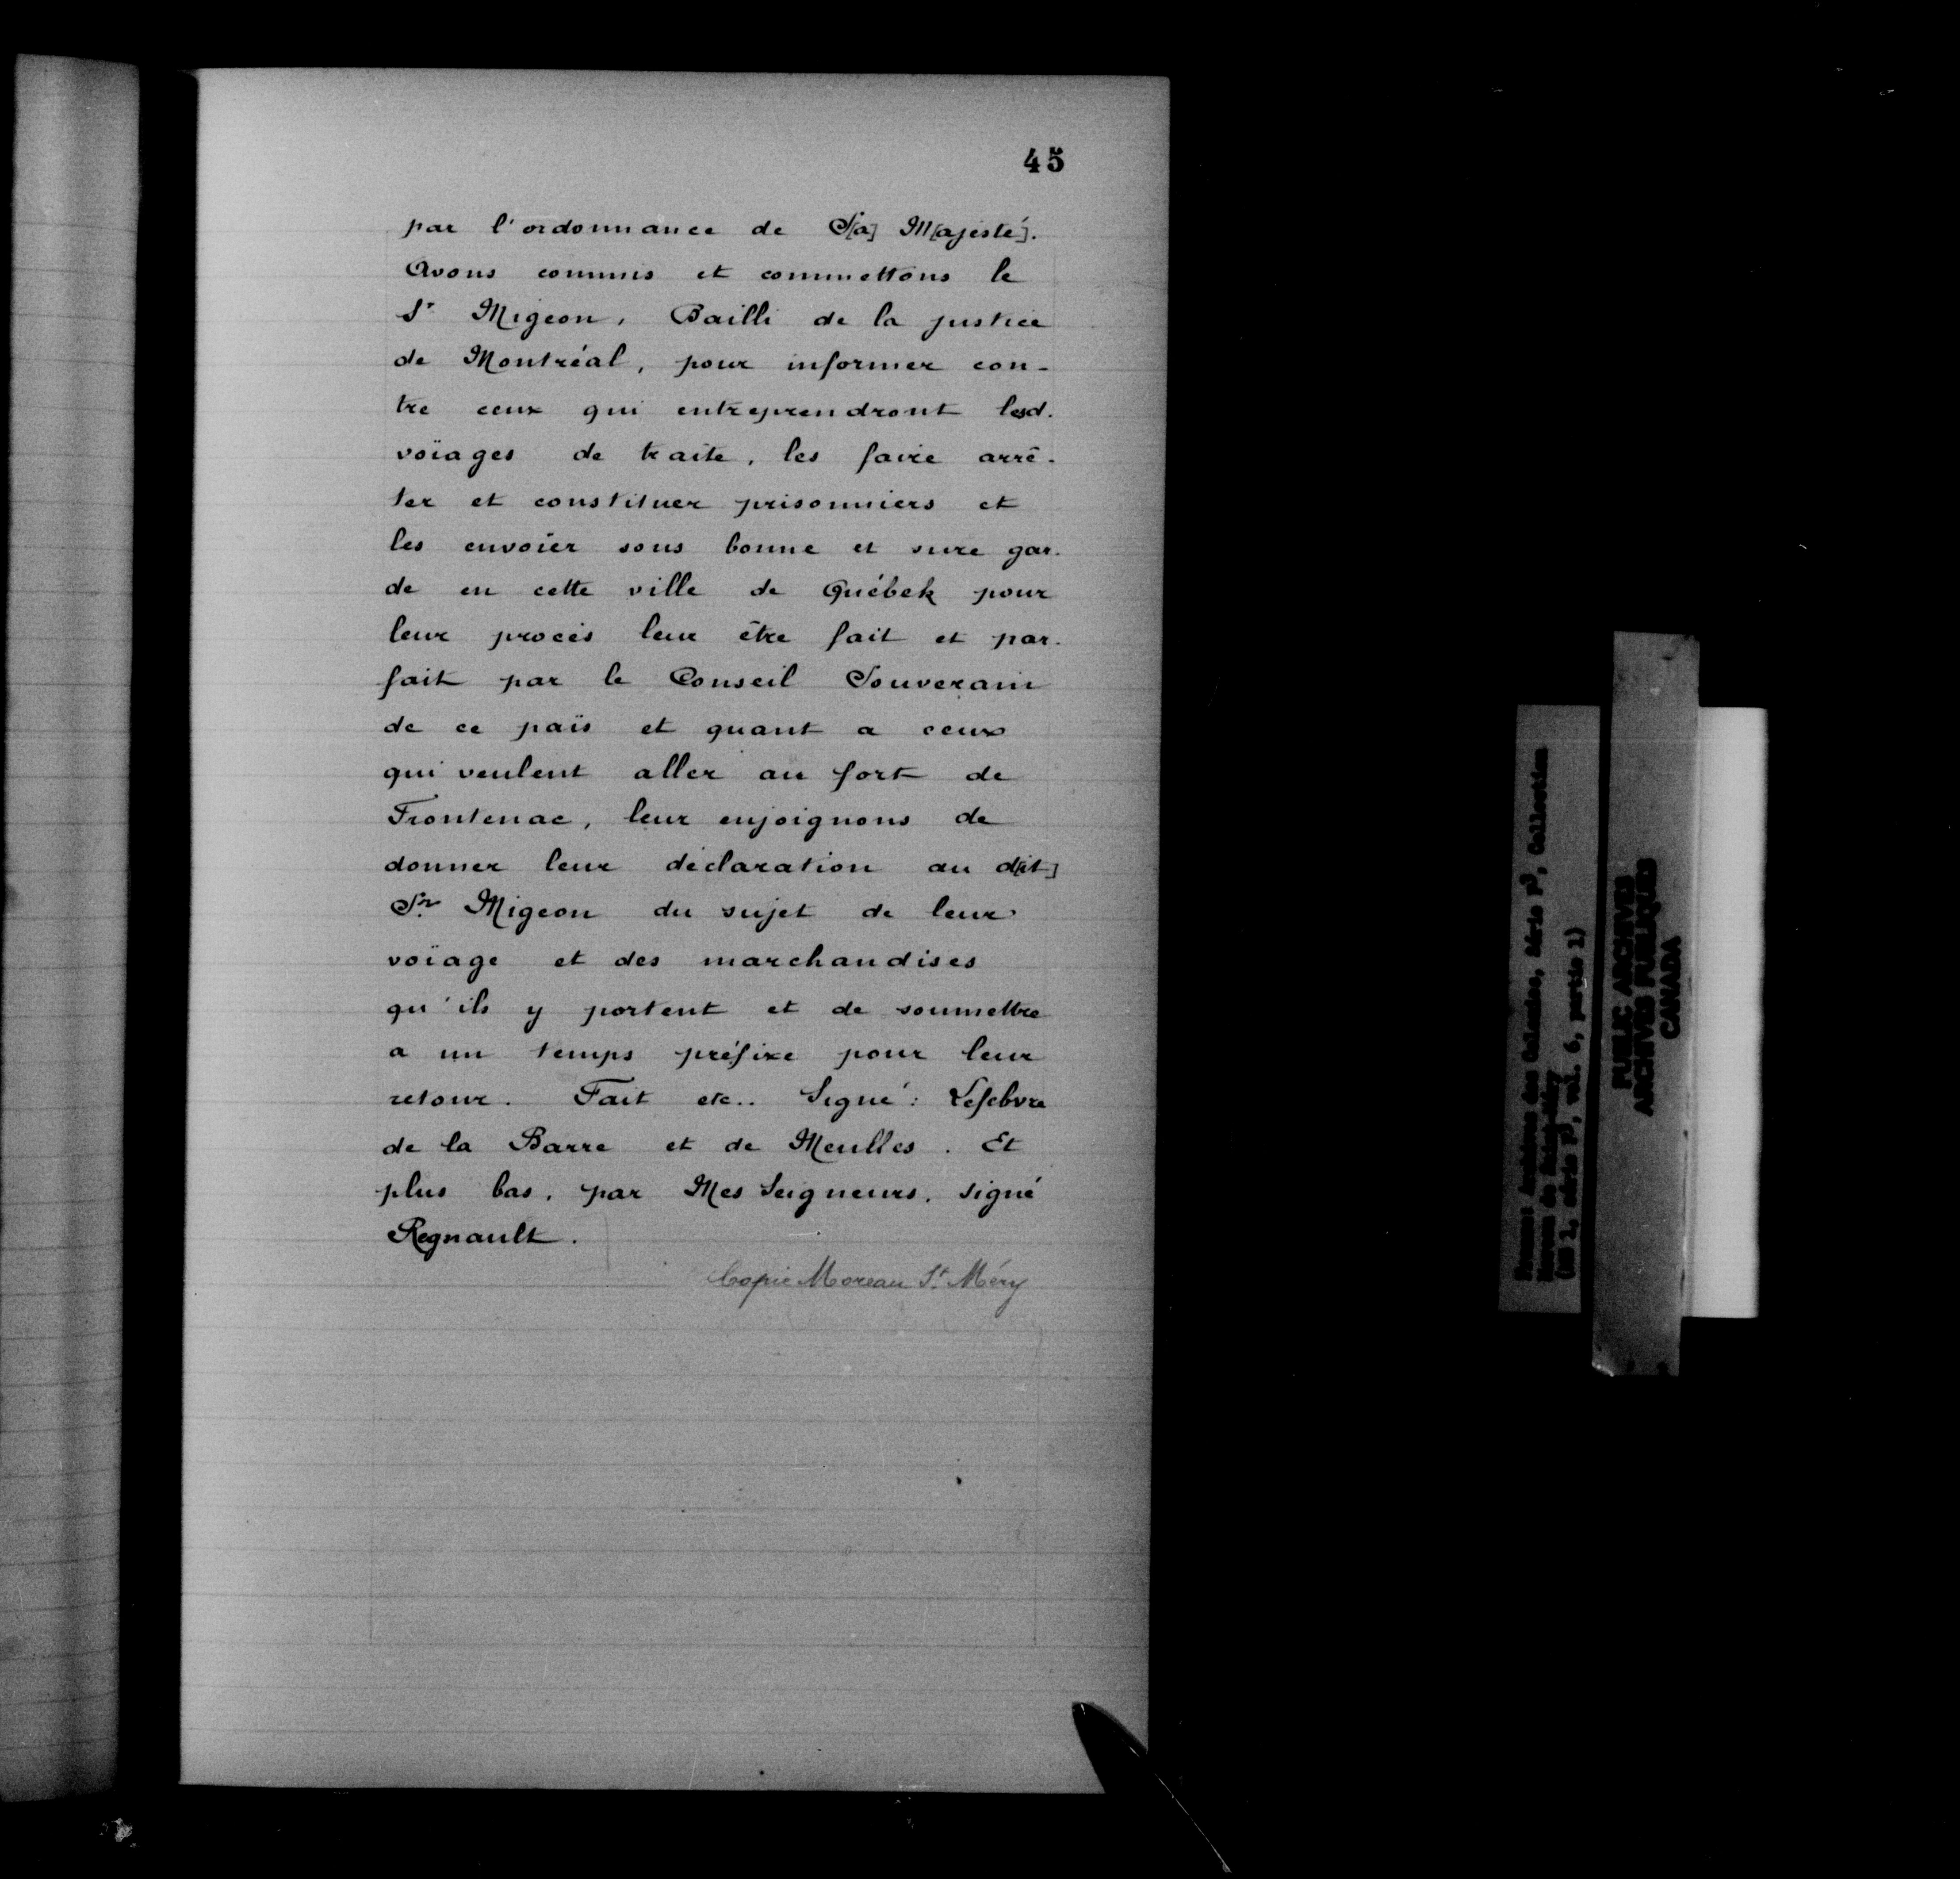 45
par l'ordonnance de S[a] M[ajesté].
Avons commis et commettons le
Sr Migeon, Bailli de la justice
de Montréal, pour informer con-
tre ceux qui entreprendront lesd.
voïages de traite, les faire arrê-
ter et constituer prisonniers et
les envoïer sous bonne et sure gar-
de en cette ville de Québek pour
leur procès leur être fait et par-
fait par le Conseil Souverain
de ce païs et quant a ceux
qui veulent aller au fort de
Frontenac, leur enjoignons de
donner leur déclaration au d[it]
Sr Migeon du sujet de leur
voïage et des marchandises
qu'ils y portent et de soumettre
a un temps préfixe pour leur
retour. Fait etc.. Signé: Lefebvre
de la Barre et de Meulles. Et
plus bas, par Mes Seigneurs, signé
Regnault.
Copie Moreau St. Méry
France: Archives des Colonies, Série F3, Collection
Moreau de Saint-Méry
(MG 1, série F3, vol. 6, partie 1)
PUBLIC ARCHIVES
ARCHIVES PUBLIQUES
CANADA